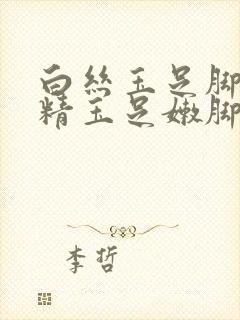 白丝玉足脚
精玉足嫩脚
李哲